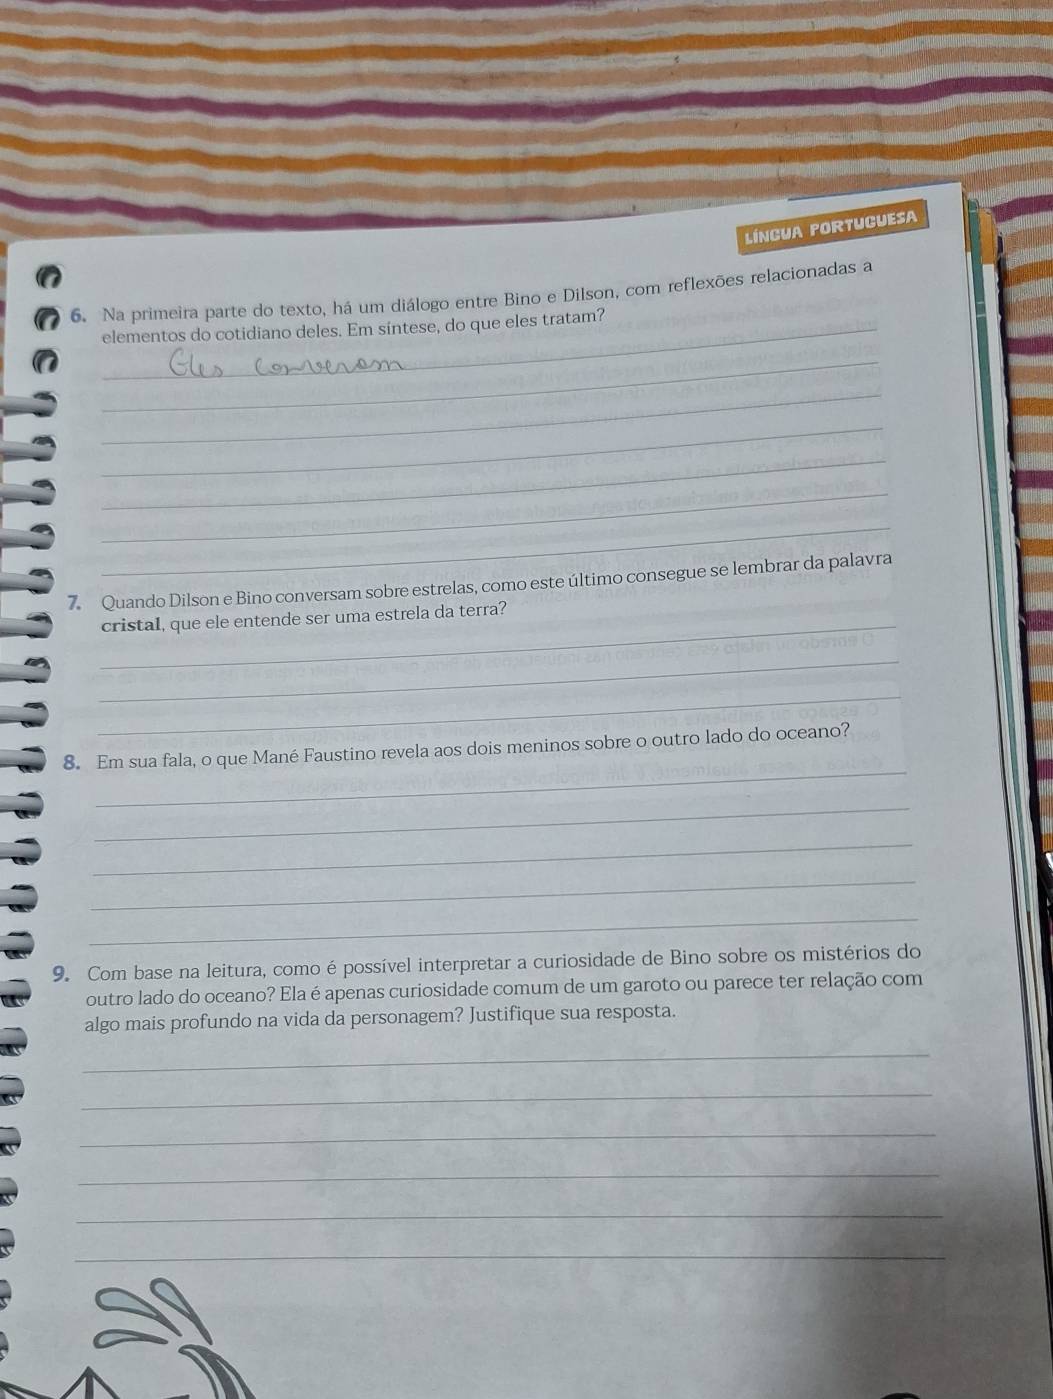 LÍNGUA PORTUGUESA
6. Na primeira parte do texto, há um diálogo entre Bino e Dilson, com reflexões relacionadas a
elementos do cotidiano deles. Em síntese, do que eles tratam?
Eles converam
7. Quando Dilson e Bino conversam sobre estrelas, como este último consegue se lembrar da palavra
cristal, que ele entende ser uma estrela da terra?
8. Em sua fala, o que Mané Faustino revela aos dois meninos sobre o outro lado do oceano?
9. Com base na leitura, como é possível interpretar a curiosidade de Bino sobre os mistérios do
outro lado do oceano? Ela é apenas curiosidade comum de um garoto ou parece ter relação com
algo mais profundo na vida da personagem? Justifique sua resposta.